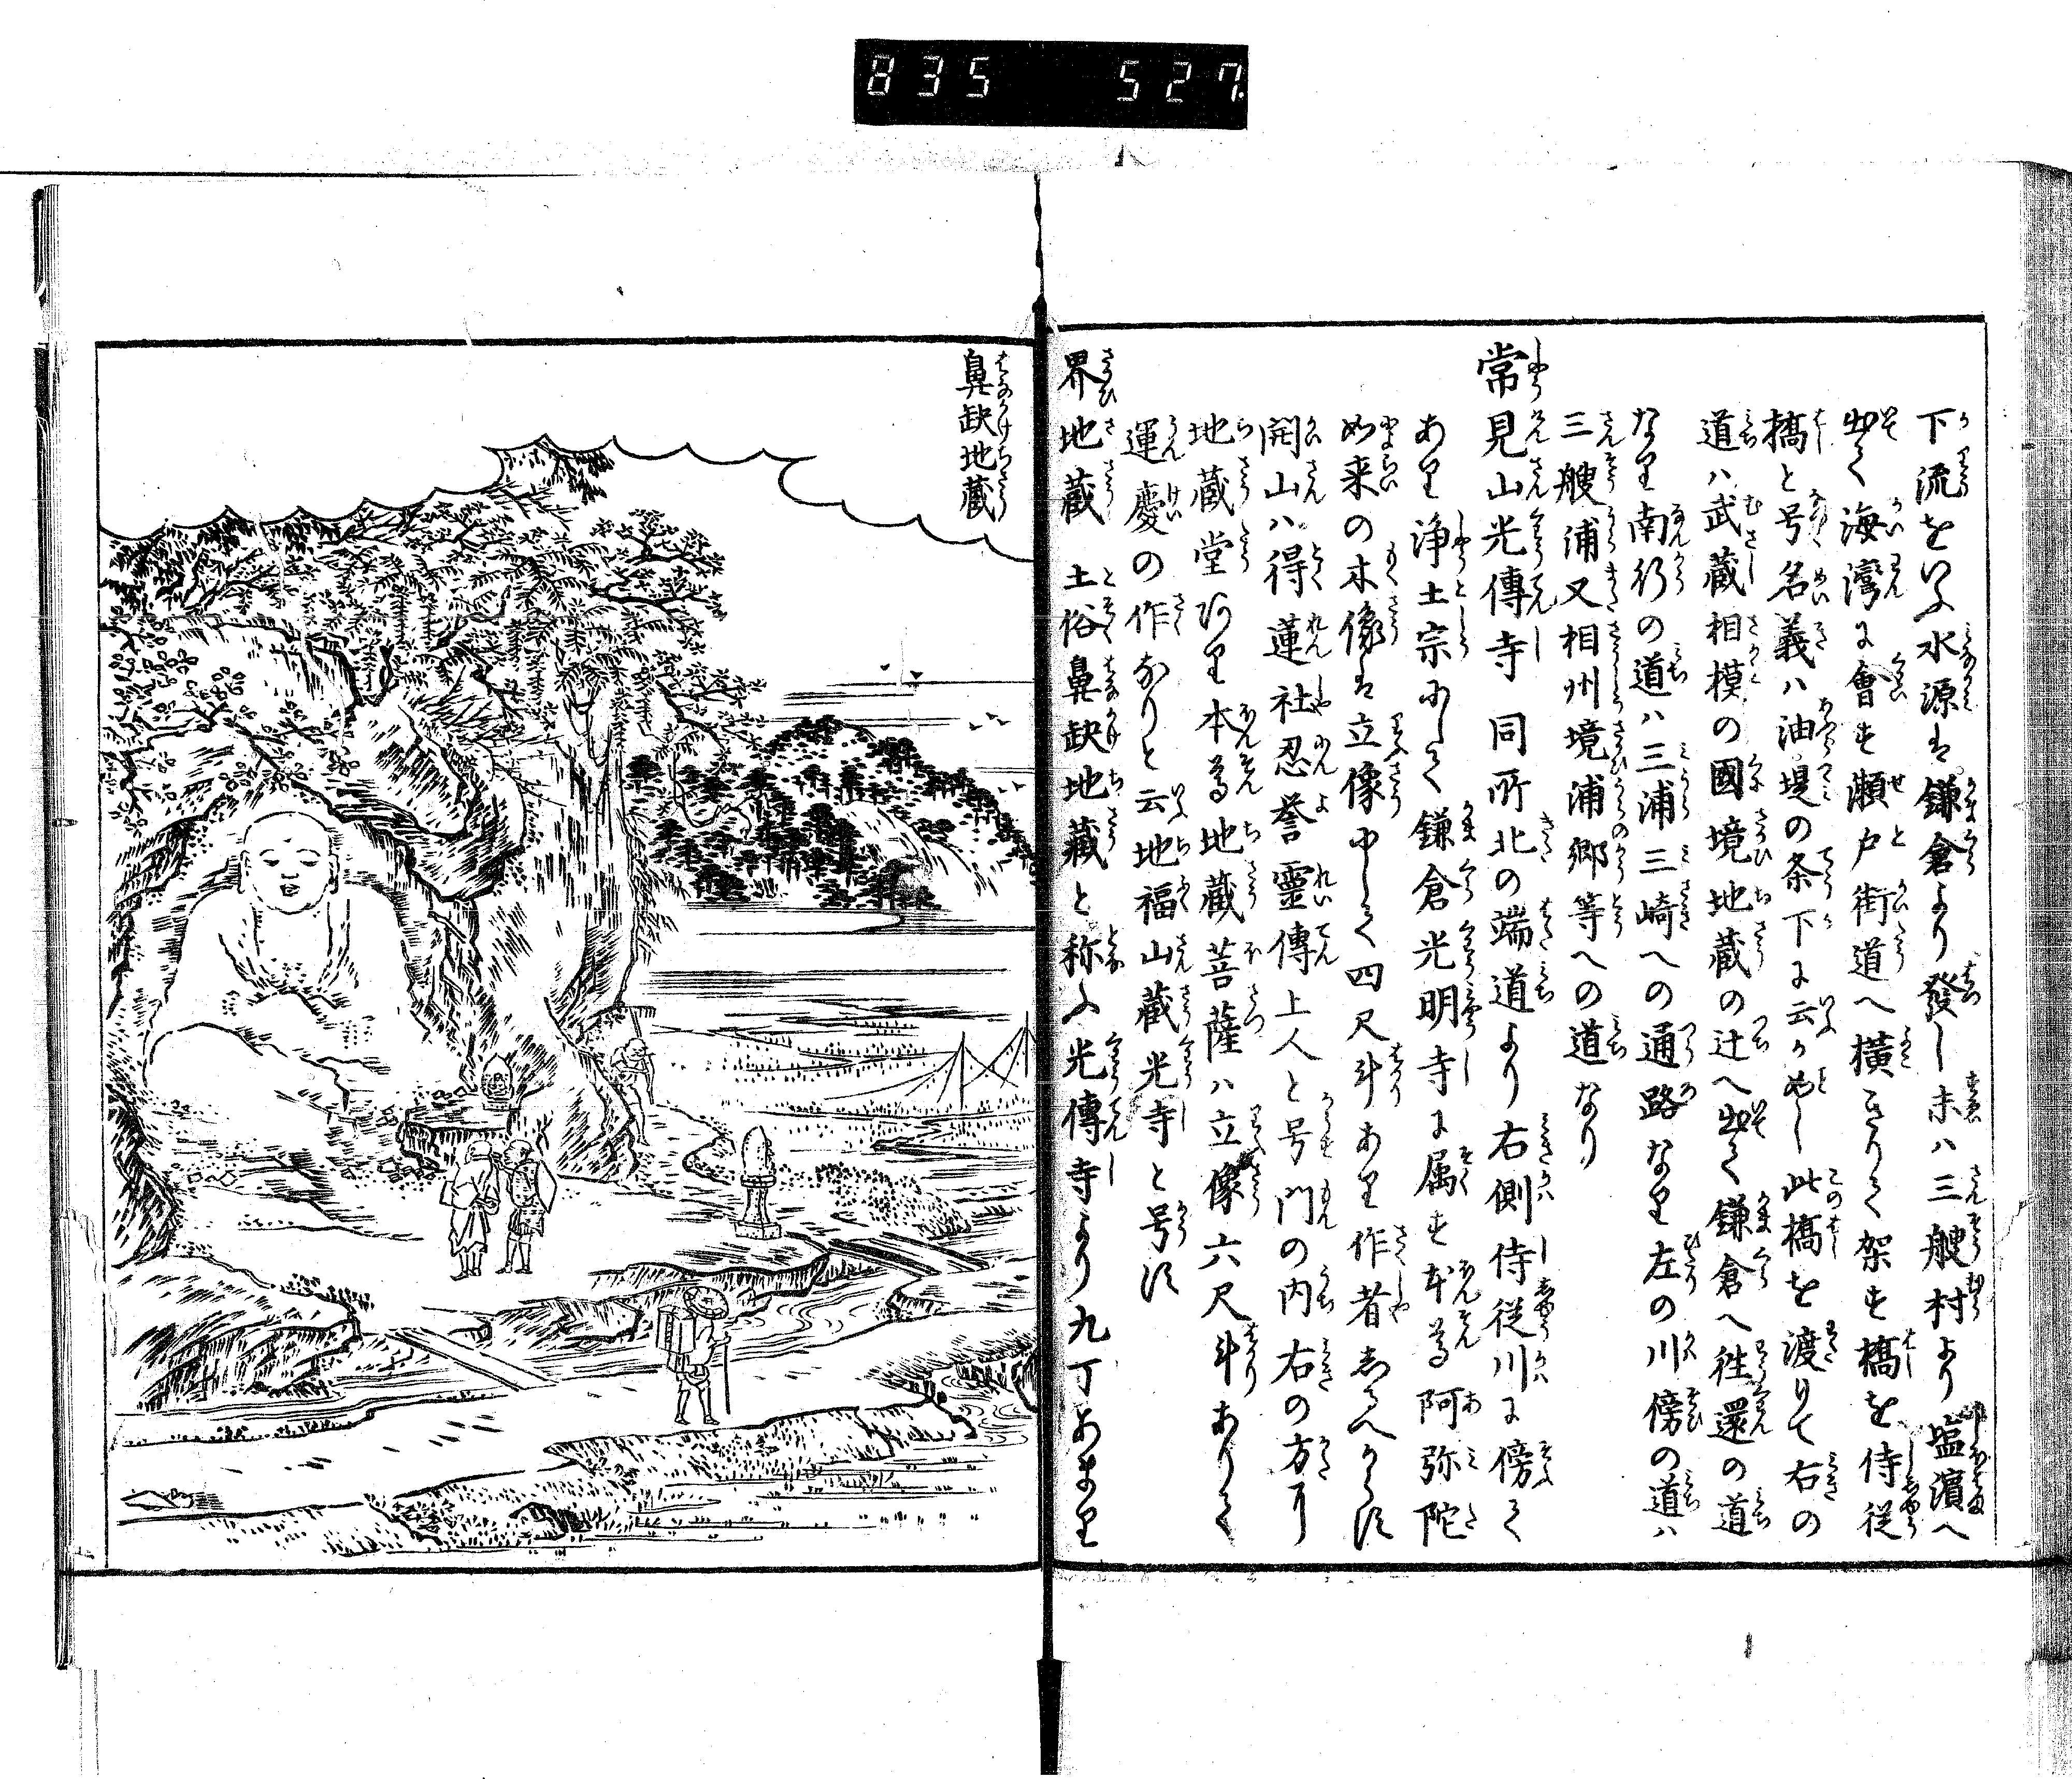 835 527
下流をいふ水源は鎌倉より發し末ハ三艘村より塩濱へ
出て海灣に會す瀬戸街道へ横きりて架す橋を侍従
橋と号名義ハ油堤の条下に云か如し此橋を渡りて右の
道ハ武蔵相模の國境地蔵の辻へ出て鎌倉へ往還の道
なり南行の道ハ三浦三崎への通路なり左の川傍の道ハ
三艘浦又相州境浦郷等への道なり
常見山光傳寺 同所北の端道より右側侍従川に傍て
あり浄土宗にして鎌倉光明寺に属す本尊阿弥陀
如来の木像は立像にして四尺斗あり作者しるへからす
開山ハ得蓮社忍誉靈傳上人と号門の内右の方に
地蔵堂あり本尊地蔵菩薩ハ立像六尺斗ありて
運慶の作なりと云地福山蔵光寺と号す
界地蔵 土俗鼻缺地蔵と称ふ光傳寺より九丁あまり
鼻缺地蔵